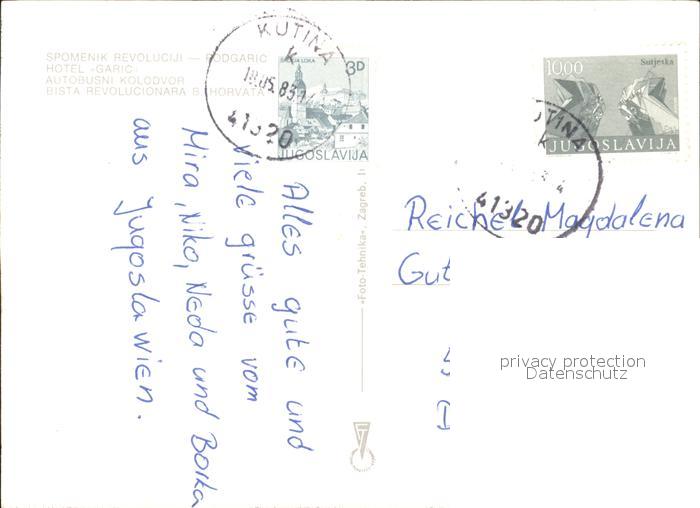 SPOMENIK REVOLUCIJI — PODGARIC
HOTEL »GARIC«
AUTOBUSNI KOLODVOR
BISTA REVOLUCIONARA B. HORVATA
KUTINA
K
18.05.83
41320
3D
JUGOSLAVIJA
1000
Sutjeska
JUGOSLAVIJA
UTINA
K
41320
Alles gute und
viele grüsse vom
Mira, Niko, Neda und Borka
aus Jugoslawien.
»Foto-Tehnika«, Zagreb,
Reichel Magdalena
Gut
privacy protection
Datenschutz